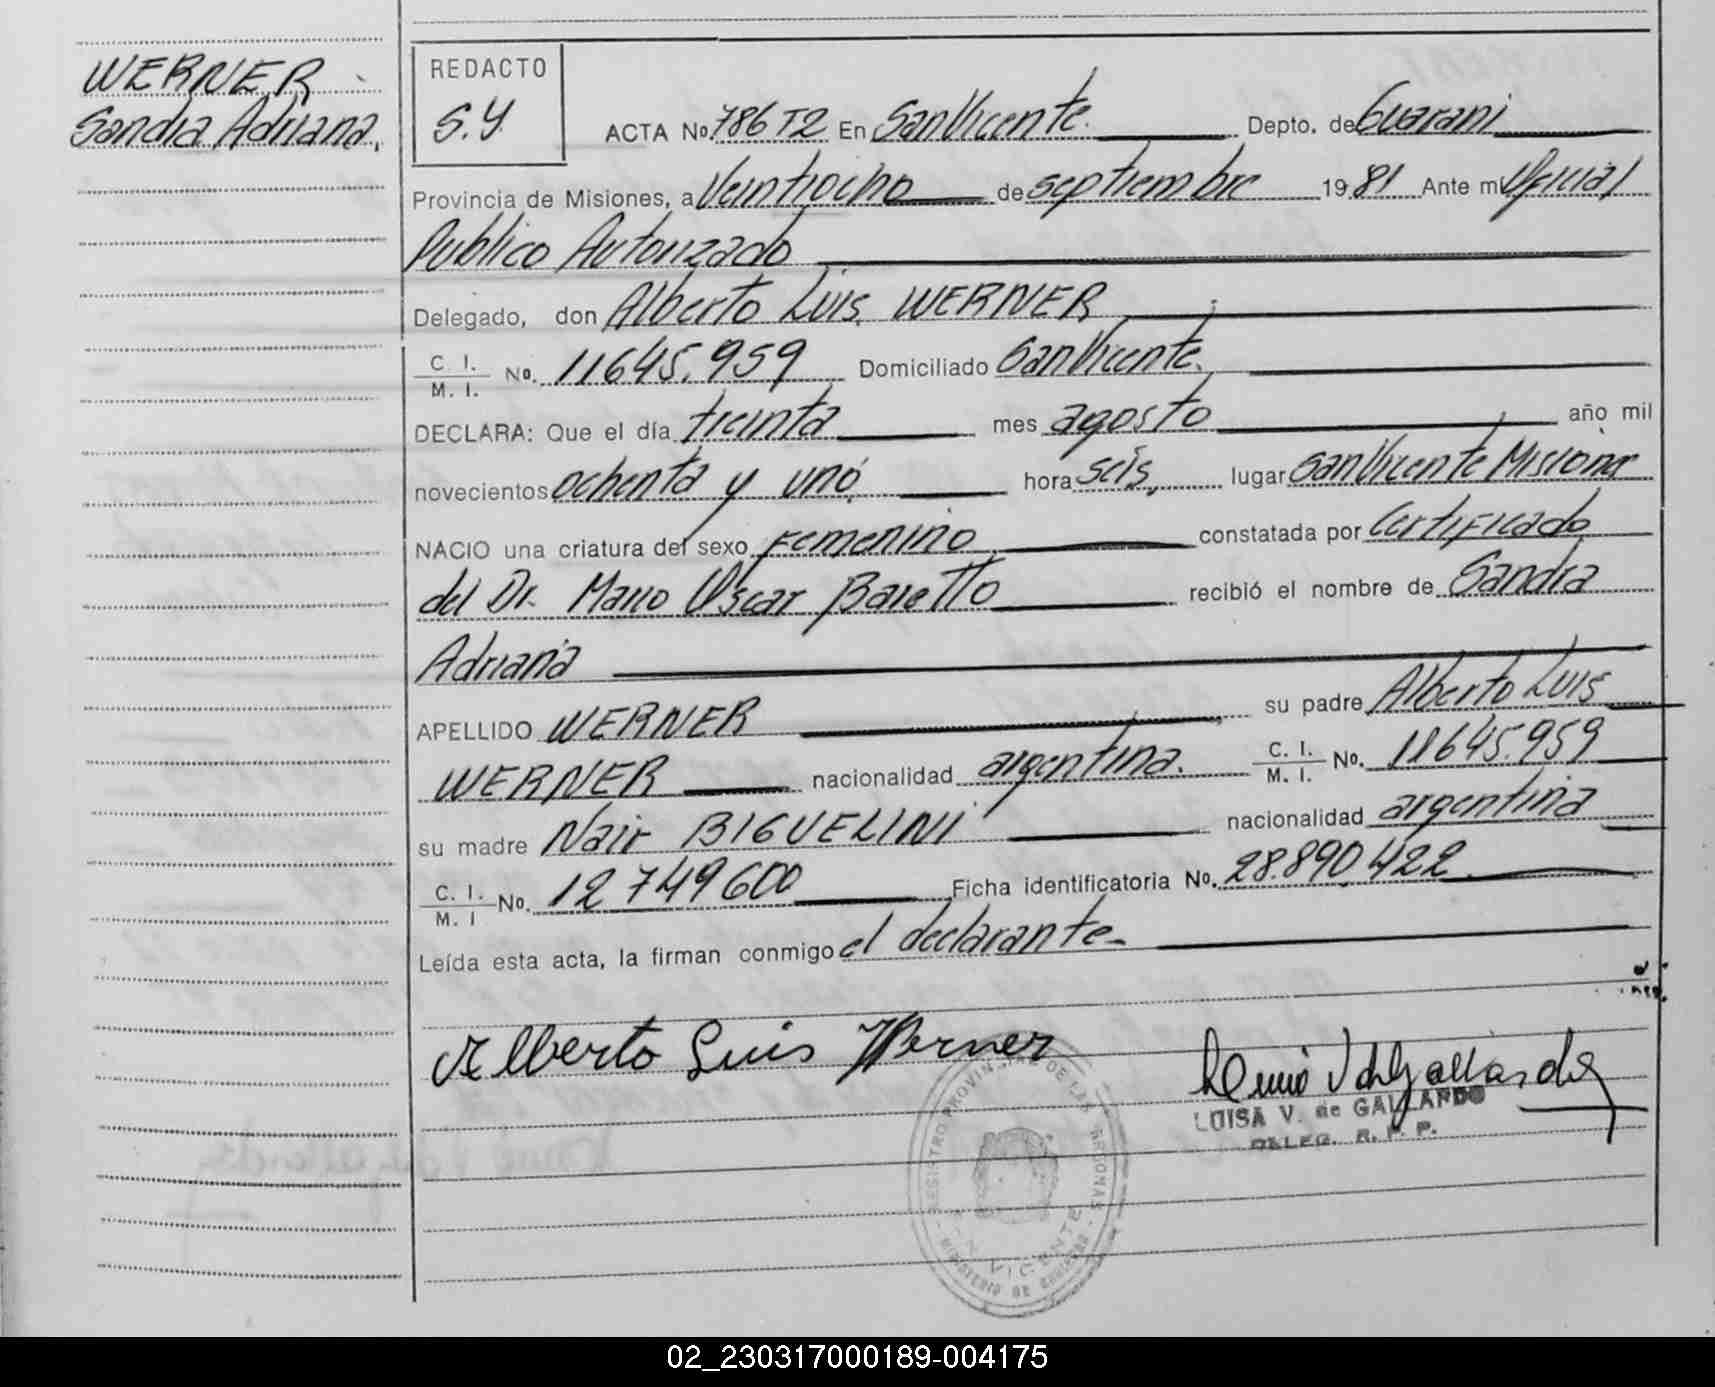 WERNER
Sandra Adriana,
REDACTO
S.Y.
ACTA No. 786 T2 En San Vicente. Depto. de Guarani
Provincia de Misiones, a Veintiocho de septiembre 1981 Ante mi Oficial
Publico Autorizado
Delegado, don Alberto Luis WERNER
C. I.
M. I. No. 11645.959 Domiciliado San Vicente.
DECLARA: Que el día treinta mes agosto año mil
novecientos ochenta y uno hora seis, lugar San Vicente Misiones
NACIO una criatura del sexo Femenino constatada por Certificado
del Dr. Mario Oscar Baretto recibió el nombre de Sandra
Adriana
APELLIDO WERNER su padre Alberto Luis
WERNER nacionalidad argentina. C. I.
M. I. No. 11645.959
su madre Nair BIGUELINI nacionalidad argentina
C. I.
M. I No. 12749600 Ficha identificatoria No. 28.890.422
Leída esta acta, la firman conmigo el declarante.
Alberto Luis Werner
LUISA V. de GALLARDO
DELEG. R. P. P.
REGISTRO PROVINCIAL DE LAS PERSONAS
SAN VICENTE
MINISTERIO DE GOBIERNO
02_230317000189-004175